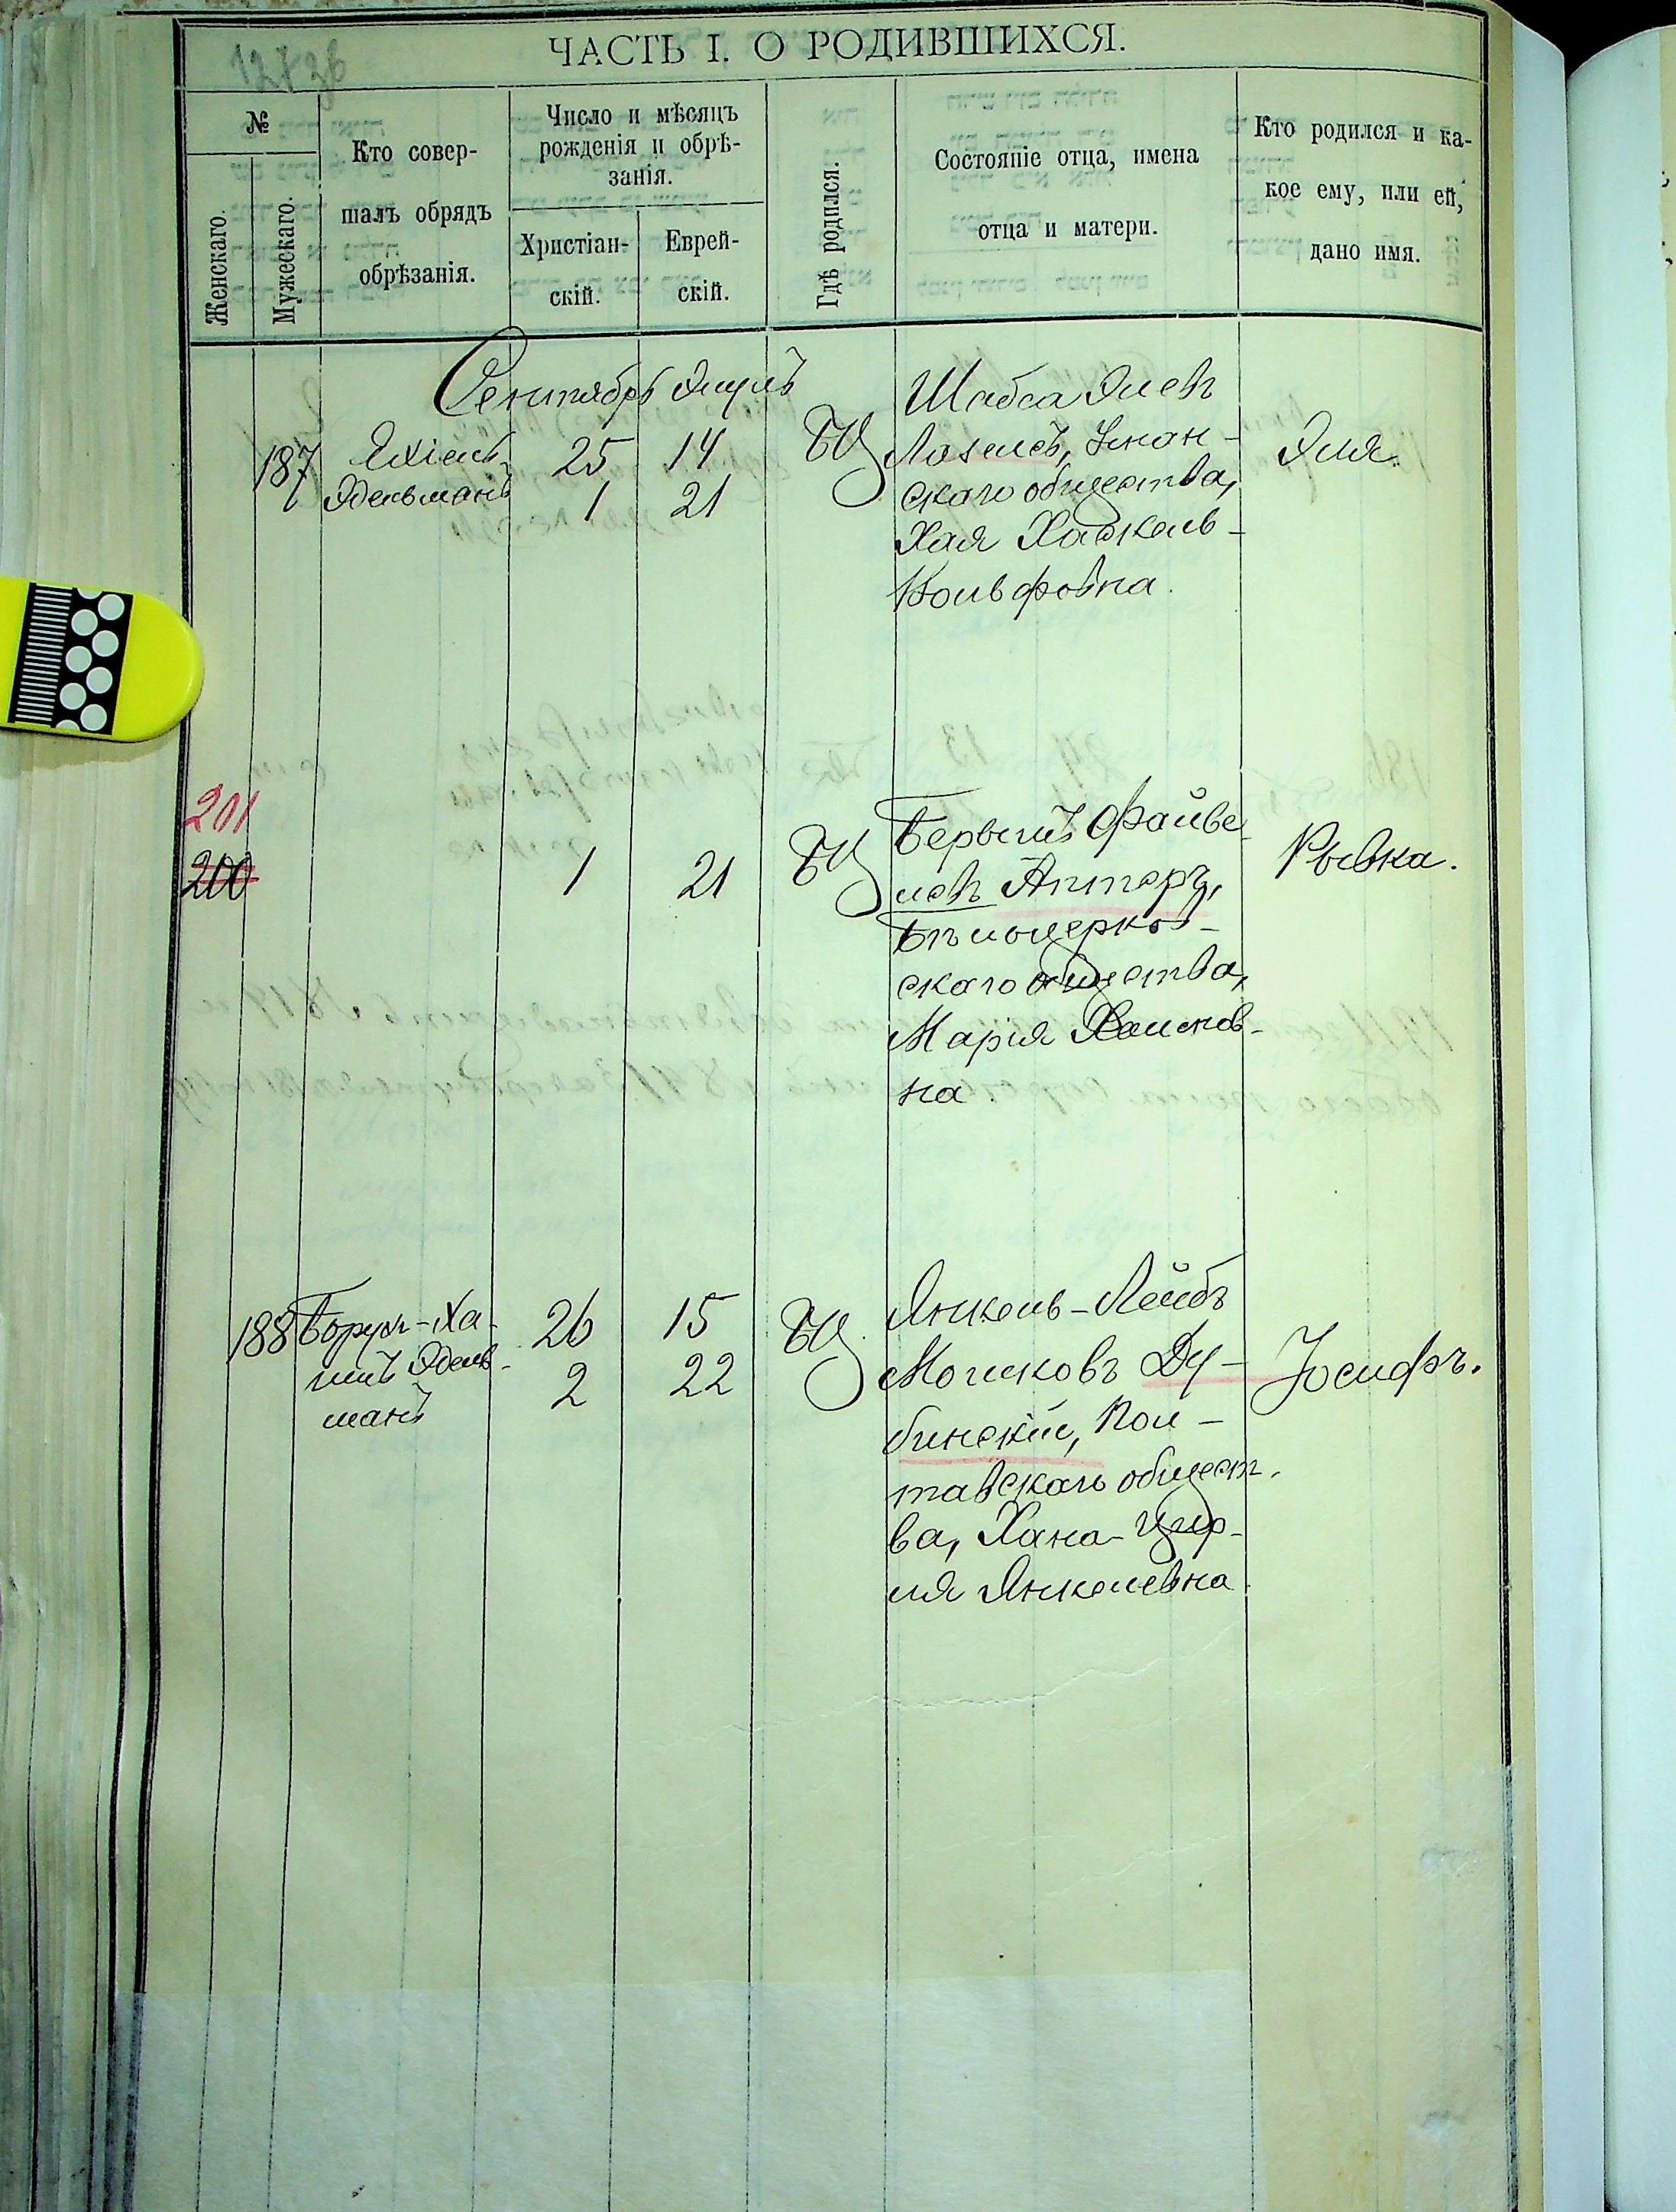 ЧАСТЬ I. О РОДИВШИХСЯ.
№
Женскаго.
Мужескаго.
Кто совер-
шалъ обрядъ
обрѣзанія.
Число и мѣсяцъ
рожденія и обрѣ-
занія.
Христіан-
скій.
Еврей-
скій.
Гдѣ родился.
Состояніе отца, имена
отца и матери.
Кто родился и ка-
кое ему, или ей,
дано имя.
Сентябрь
187
Ехіель
Эдельманъ
25 14
1 21
БЦ
Шабса Элевъ
Уман-
скаго общества,
Хая Хаскель-
Вольфовна.
Эля.
201
200
1
21
БЦ
Файве-
левъ Аптеръ,
Бѣлоцерков-
скаго общества,
Марія
на.
Рывка.
188
Борух-Ха-
имъ Эдель-
манъ
26 15
2 22
БЦ
Янкель-Лейбъ
Мошковъ Ду-
бинскій, Пол-
тавскаго общест-
ва, Хана-Цир-
ля Янкелевна.
Іосифъ.